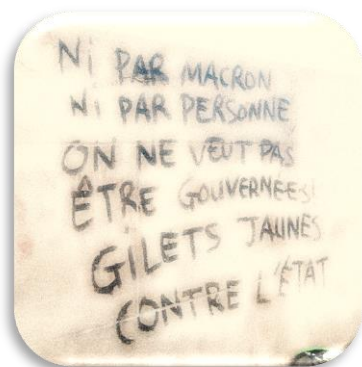 Ni PAR MACRON
Ni PAR PERSONNE
ON NE VEUT PAS
ÊTRE GOUVERNÉES
GILETS JAUNES
CONTRE L'ÉTAT